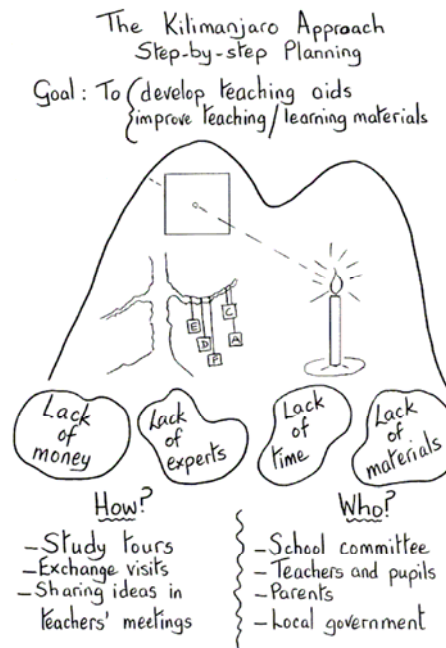 The Kilimanjaro Approach
Step-by-step Planning
Goal: To { develop teaching aids
improve teaching / learning materials
E
D
F
C
A
Lack
of
money
Lack
of
experts
Lack
of
time
Lack
of
materials
How?
- Study tours
- Exchange visits
- Sharing ideas in
teachers' meetings
Who?
- School committee
- Teachers and pupils
- Parents
- Local government